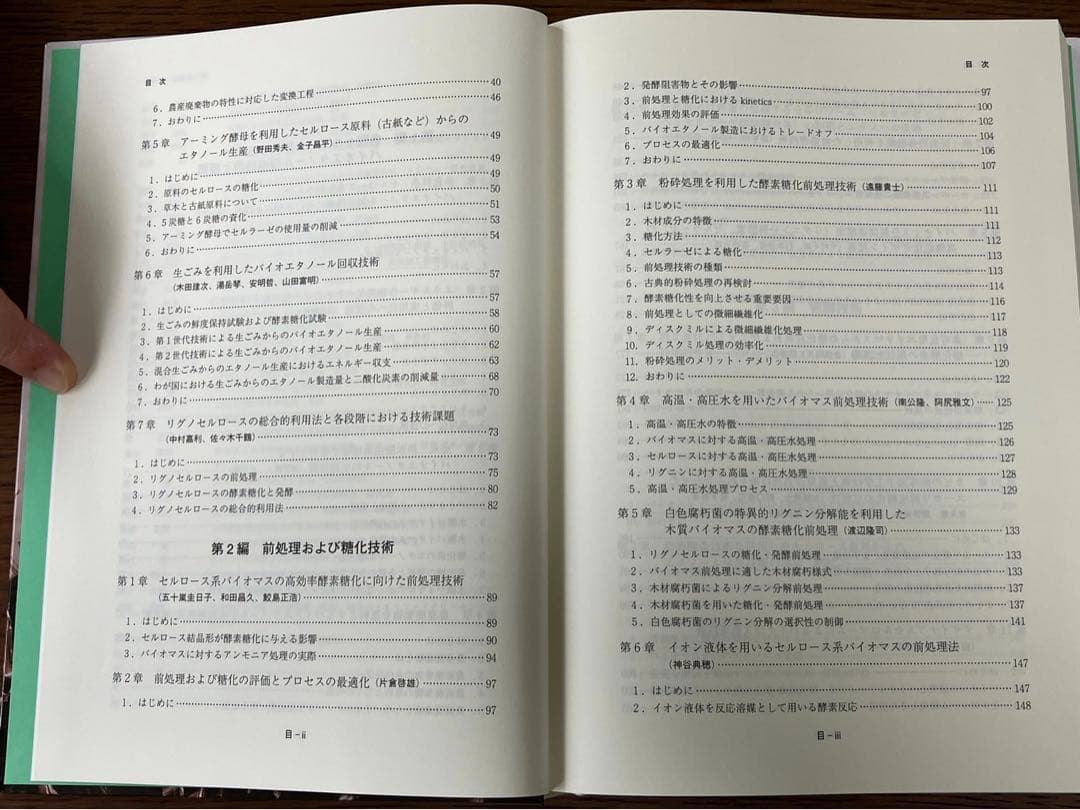 目 次
6．農産廃棄物の特性に対応した変換工程 40
7．おわりに 46
第5章 アーミング酵母を利用したセルロース原料（古紙など）からの
エタノール生産（野田秀夫、金子昌平） 49
1．はじめに 49
2．原料のセルロースの糖化 49
3．草木と古紙原料について 50
4．5炭糖と6炭糖の資化 51
5．アーミング酵母でセルラーゼの使用量の削減 53
6．おわりに 54
第6章 生ごみを利用したバイオエタノール回収技術
（木田建次、湯岳琴、安明哲、山田富明） 57
1．はじめに 57
2．生ごみの鮮度保持試験および酵素糖化試験 58
3．第1世代技術による生ごみからのバイオエタノール生産 60
4．第2世代技術による生ごみからのバイオエタノール生産 62
5．混合生ごみからのエタノール生産におけるエネルギー収支 63
6．わが国における生ごみからのエタノール製造量と二酸化炭素の削減量 68
7．おわりに 70
第7章 リグノセルロースの総合的利用法と各段階における技術課題
（中村嘉利、佐々木千鶴） 73
1．はじめに 73
2．リグノセルロースの前処理 75
3．リグノセルロースの酵素糖化と発酵 80
4．リグノセルロースの総合的利用法 82
第2編 前処理および糖化技術
第1章 セルロース系バイオマスの高効率酵素糖化に向けた前処理技術
（五十嵐圭日子、和田昌久、鮫島正浩） 89
1．はじめに 89
2．セルロース結晶形が酵素糖化に与える影響 90
3．バイオマスに対するアンモニア処理の実際 94
第2章 前処理および糖化の評価とプロセスの最適化（片倉啓雄） 97
1．はじめに 97
目－ii
目 次
2．発酵阻害物とその影響 97
3．前処理と糖化における kinetics 100
4．前処理効果の評価 102
5．バイオエタノール製造におけるトレードオフ 104
6．プロセスの最適化 106
7．おわりに 107
第3章 粉砕処理を利用した酵素糖化前処理技術（遠藤貴士） 111
1．はじめに 111
2．木材成分の特徴 111
3．糖化方法 112
4．セルラーゼによる糖化 113
5．前処理技術の種類 113
6．古典的粉砕処理の再検討 114
7．酵素糖化性を向上させる重要要因 116
8．前処理としての微細繊維化 117
9．ディスクミルによる微細繊維化処理 118
10．ディスクミル処理の効率化 119
11．粉砕処理のメリット・デメリット 120
12．おわりに 122
第4章 高温・高圧水を用いたバイオマス前処理技術（南公隆、阿尻雅文） 125
1．高温・高圧水の特徴 125
2．バイオマスに対する高温・高圧水処理 126
3．セルロースに対する高温・高圧水処理 127
4．リグニンに対する高温・高圧水処理 128
5．高温・高圧水処理プロセス 129
第5章 白色腐朽菌の特異的リグニン分解能を利用した
木質バイオマスの酵素糖化前処理（渡辺隆司） 133
1．リグノセルロースの糖化・発酵前処理 133
2．バイオマス前処理に適した木材腐朽様式 133
3．木材腐朽菌によるリグニン分解前処理 137
4．木材腐朽菌を用いた糖化・発酵前処理 137
5．白色腐朽菌のリグニン分解の選択性の制御 141
第6章 イオン液体を用いるセルロース系バイオマスの前処理法
（神谷典穂） 147
1．はじめに 147
2．イオン液体を反応溶媒として用いる酵素反応 148
目－iii